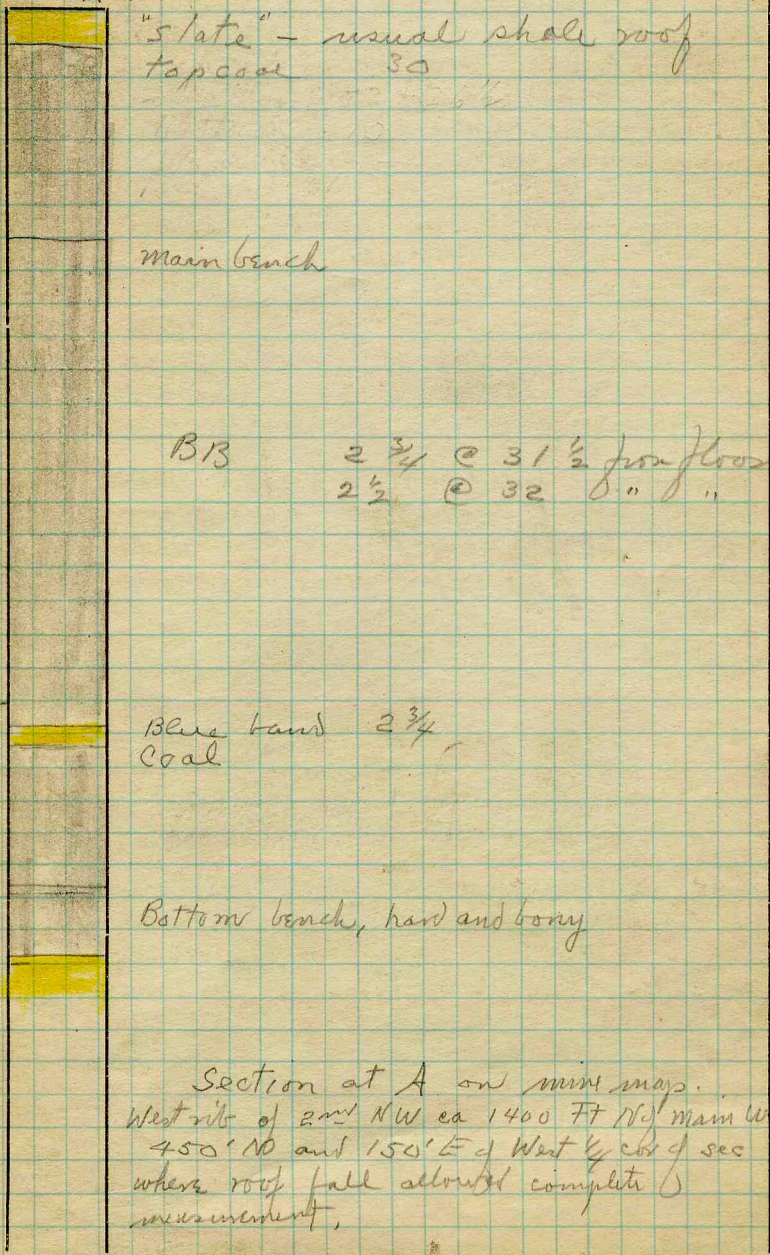 "slate" - usual shale roof
topcoal 30
main bench
BB 2 3/4 @ 31 1/2 from floor
2 1/2 @ 32 " "
Blue band 2 3/4
Coal
Bottom bench, hard and bony
Section at A on mine map.
West rib of 2nd NW ca 1400 Ft N of main W
450' No and 150' E of West 1/4 cor of sec
where roof fall allowed complete
measurement.